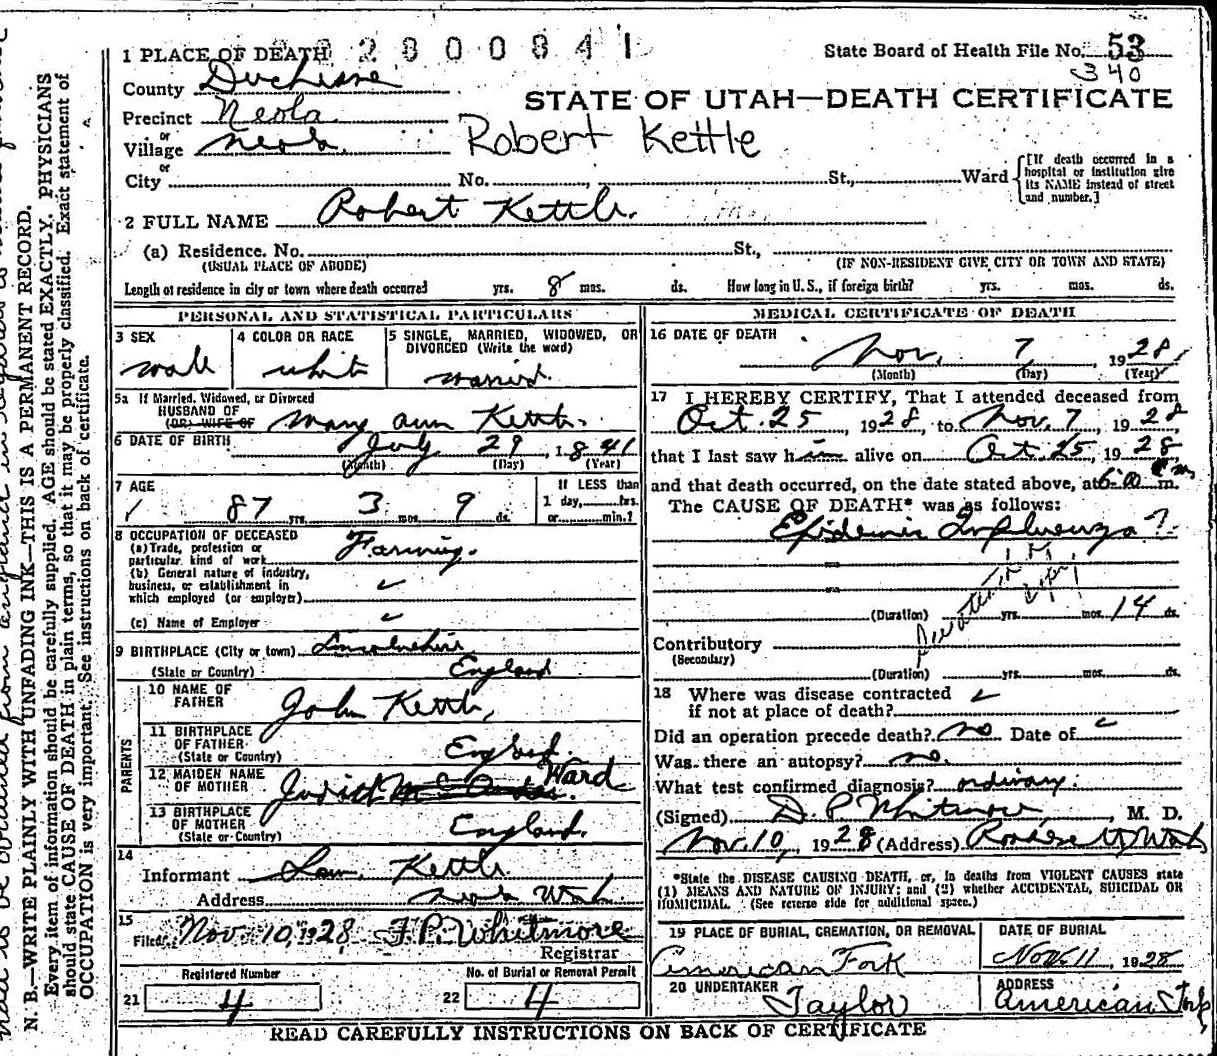 2800841
1 PLACE OF DEATH
State Board of Health File No. 53
340
County Duchesne
STATE OF UTAH—DEATH CERTIFICATE
Precinct Neola
or
Village Neola
Robert Kettle
or
City No. St., Ward
[If death occurred in a hospital or institution give its NAME instead of street and number.]
2 FULL NAME Robert Kettle.
(a) Residence. No. St.,
(USUAL PLACE OF ABODE) (IF NON-RESIDENT GIVE CITY OR TOWN AND STATE)
Length of residence in city or town where death occurred yrs. 8 mos. ds. How long in U.S., if foreign birth? yrs. mos. ds.
PERSONAL AND STATISTICAL PARTICULARS
3 SEX
male
4 COLOR OR RACE
white
5 SINGLE, MARRIED, WIDOWED, OR
DIVORCED (Write the word)
married
5a If Married, Widowed, or Divorced
HUSBAND OF
(OR) WIFE OF Mary Ann Kettle
6 DATE OF BIRTH July 29, 1841
(Month) (Day) (Year)
7 AGE
87 yrs. 3 mos. 9 ds.
If LESS than
1 day, hrs.
or min.?
8 OCCUPATION OF DECEASED
(a) Trade, profession or
particular kind of work Farming.
(b) General nature of industry,
business, or establishment in
which employed (or employer)
(c) Name of Employer
9 BIRTHPLACE (City or town) Lincolnshire
(State or Country) England
PARENTS
10 NAME OF
FATHER John Kettle,
11 BIRTHPLACE
OF FATHER
(State or Country) England.
12 MAIDEN NAME
OF MOTHER Judith Ward
13 BIRTHPLACE
OF MOTHER
(State or Country) England.
14
Informant Kettle.
Address Neola Utah.
15
Filed Nov. 10, 1928 F. P. Whitmore
Registrar
Registered Number
21 4
No. of Burial or Removal Permit
22 4
MEDICAL CERTIFICATE OF DEATH
16 DATE OF DEATH
Nov. 7 1928
(Month) (Day) (Year)
17 I HEREBY CERTIFY, That I attended deceased from
Oct. 25 1928, to Nov. 7, 1928,
that I last saw him alive on Oct. 25, 1928
and that death occurred, on the date stated above, at 6:00 P m.
The CAUSE OF DEATH* was as follows:
Epidemic Influenza?
(Duration) yrs. mos. 14 ds.
Contributory
(Secondary)
(Duration) yrs. mos. ds.
18 Where was disease contracted
if not at place of death?
Did an operation precede death? no Date of
Was there an autopsy? no.
What test confirmed diagnosis? ordinary.
(Signed) D. P. Whitmore, M. D.
Nov. 10, 1928 (Address) Roosevelt Utah
*State the DISEASE CAUSING DEATH, or, in deaths from VIOLENT CAUSES state
(1) MEANS AND NATURE OF INJURY; and (2) whether ACCIDENTAL, SUICIDAL OR
HOMICIDAL. (See reverse side for additional space.)
19 PLACE OF BURIAL, CREMATION, OR REMOVAL
American Fork
DATE OF BURIAL
Nov. 11, 1928
20 UNDERTAKER
Taylor
ADDRESS
American Fork
READ CAREFULLY INSTRUCTIONS ON BACK OF CERTIFICATE
N. B.—WRITE PLAINLY WITH UNFADING INK—THIS IS A PERMANENT RECORD.
Every item of information should be carefully supplied. AGE should be stated EXACTLY. PHYSICIANS
should state CAUSE OF DEATH in plain terms, so that it may be properly classified. Exact statement of
OCCUPATION is very important. See instructions on back of certificate.